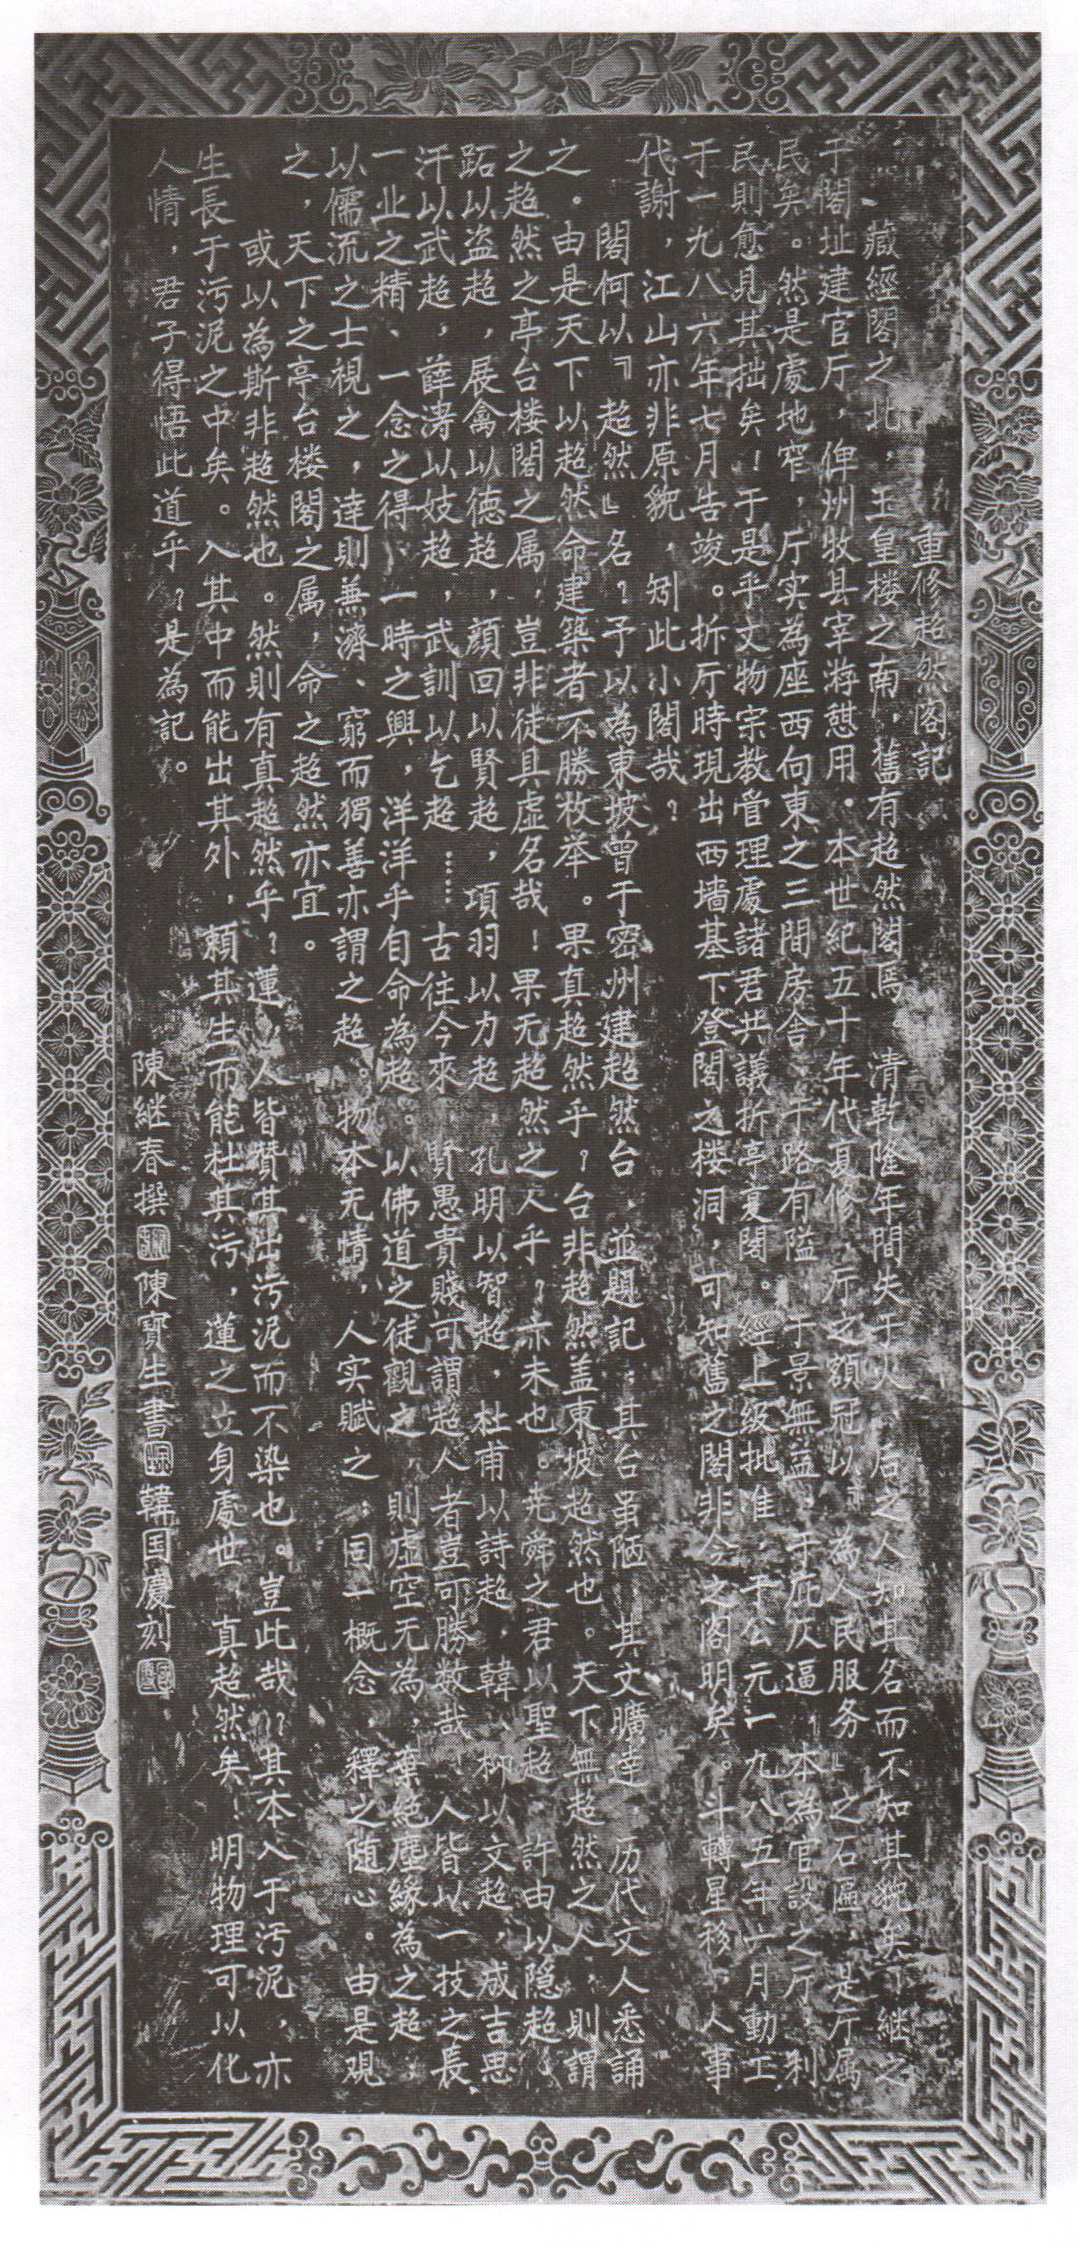 重修超然阁記
藏經閣之北，玉皇楼之南，舊有超然閣焉。清乾隆年間失于火，后之人知其名而不知其貌矣！継之
于閣址建官厅，俾州牧县宰游憇用。本世紀五十年代复修，厅之額冠以『為人民服务』之石匾，是厅属
民矣。然是處地窄，厅实為座西向東之三間房舍，于路有隘，于景無益，于庇仄逼，本為官設之厅，利
民則愈見其拙矣！于是乎文物宗教管理處諸君共議折亭复閣。經上級批准，于公元一九八五年二月動工
于一九八六年七月告竣。折厅時現出西墻基下登閣之楼洞，可知舊之閣非今之阁明矣。斗轉星移，人事
代謝，江山亦非原貌，矧此小閣哉？
閣何以『超然』名？予以為東坡曾于密州建超然台，並題記，其台虽陋，其文曠達，历代文人悉誦
之。由是天下以超然命建築者不勝枚举。果真超然乎？台非超然盖東坡超然也。天下無超然之人，則謂
之超然之亭台楼閣之属，豈非徒具虚名哉！果无超然之人乎？亦未也。尭舜之君以聖超，許由以隠超，
跖以盗超，展禽以德超，顔回以賢超，項羽以力超，孔明以智超，杜甫以詩超，韓、柳以文超，成吉思
汗以武超，薛涛以妓超，武訓以乞超……古往今來，賢愚貴賤可謂超人者豈可勝数哉，人皆以一技之長
一业之精、一念之得、一時之興，洋洋乎自命為超。以佛道之徒觀之，則虚空无為，棄絶塵緣為之超，
以儒流之士視之，達則兼濟、窮而獨善亦謂之超。物本无情，人实賦之，同一概念，釋之随心。由是观
之，天下之亭台楼閣之属，命之超然亦宜。
或以為斯非超然也。然則有真超然乎？蓮，人皆贊其出污泥而不染也。豈此哉？其本入于污泥，亦
生長于污泥之中矣。入其中而能出其外，頼其生而能杜其污，蓮之立身處世，真超然矣！明物理可以化
人情，君子得悟此道乎？是為記。
陳継春撰 陳寳生書 韓国慶刻